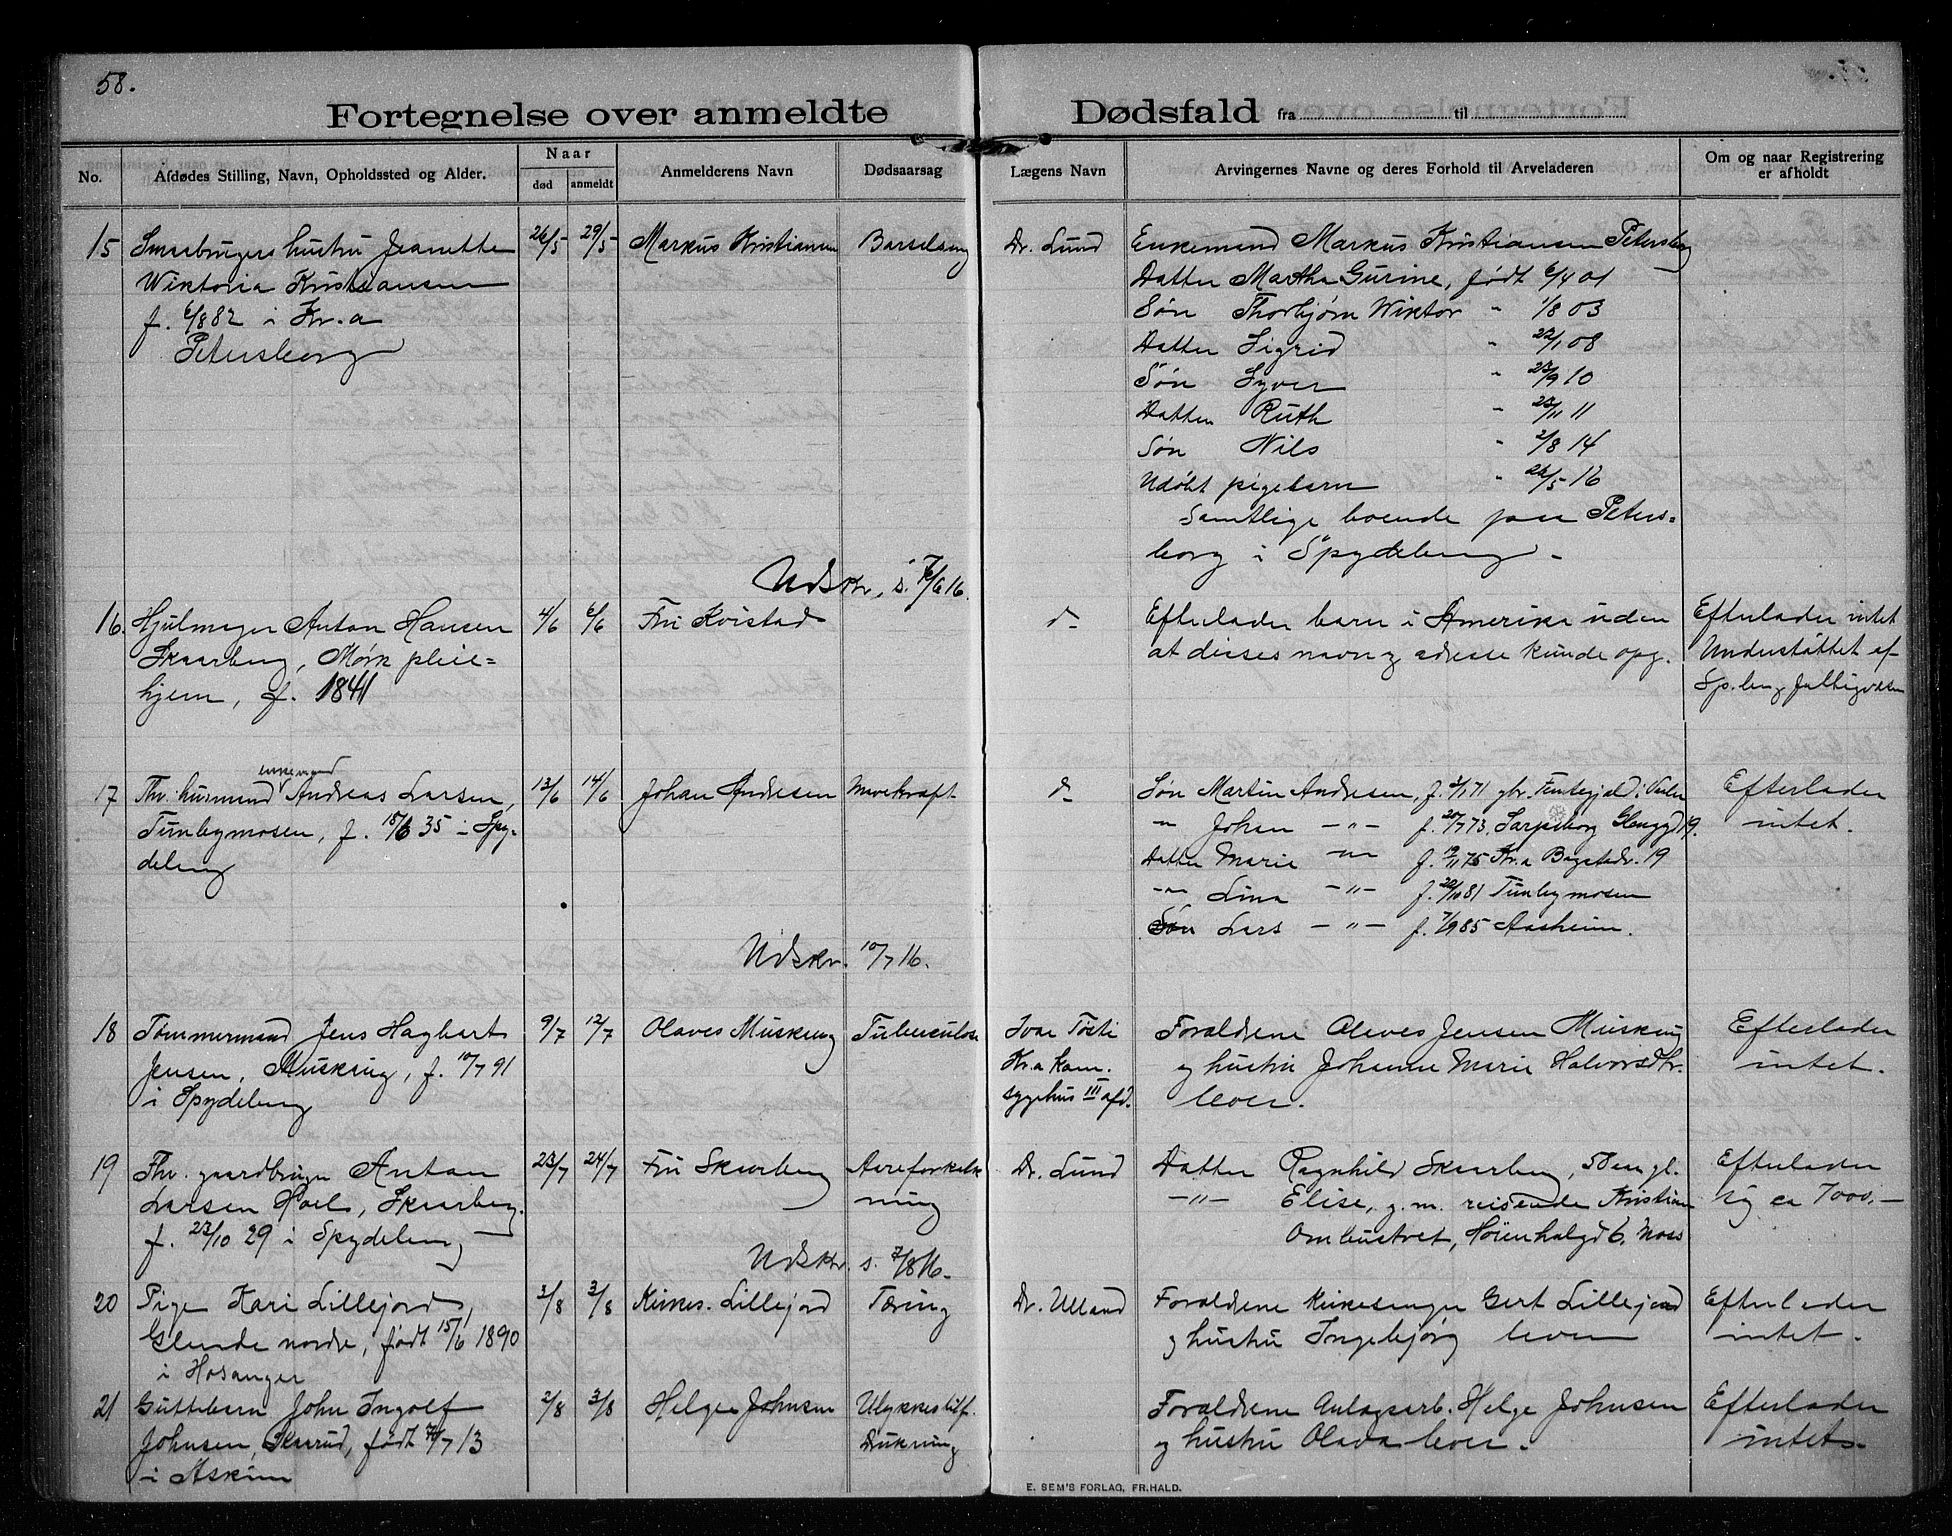 58.
Fortegnelse over anmeldte Dødsfald fra til
No.
Afdødes Stilling, Navn, Opholdssted og Alder.
Naar
død
anmeldt
Anmelderens Navn
Dødsaarsag
Lægens Navn
Arvingernes Navne og deres Forhold til Arveladeren
Om og naar Registrering
er afholdt
15 Smaabrugers hustru Jeanette 26/5 29/5 Markus Kristiansen Barselseng Dr. Lund Enkemand Markus Kristiansen Petersborg
Wiktoria Kristiansen Datter Martha Gurine, født 6/4 01
f. 6/8 82 i Kr.a Søn Thorbjørn Wiktor " 1/8 03
Petersborg Datter Sigrid " 22/1 08
Søn Syver " 23/9 10
Datter Ruth " 23/11 11
Søn Nils " 2/8 14
Udøbt pigebarn " 26/5 16
Samtlige boende paa Peters-
borg i Spydeberg -
Udskr. s. 7/6 16.
16. Hjulmager Anton Hansen 4/6 6/6 Fru Kvistad d- Efterlader barn i Amerika uden Efterlader intet
Skaarberg, Mørk pleie- at disses navn og adresse kunde opg. Understøttet af
hjem, f. 1841 Sp.berg fattigvæsen
enkemand
17 Fhv. husmand Andreas Larsen, 13/6 14/6 Johan Andresen Marekraft d- Søn Martin Andresen, f. 3/1 71 gbr. i Vaaler Efterlader
Tunbymosen, f. 15/6 35 i Spy- " Johan -"- f. 20/7 73, Sarpsborg Glenggd 19. intet.
deberg Datter Marie -"- f. 19/11 75 Kr.a Bogstadv. 19
-"- Lina -"- f. 20/10 81 Tunbymosen
Søn Lars -"- f. 7/9 85 Aasheim.
Udskr. 10/7 16.
18 Tømmermand Jens Hagbart 9/7 12/7 Olaves Muskrug Tuberculose Ivar Tosti Forældrene Olaves Jensen Muskrug Efterlader
Jensen, Muskrug, f. 10/7 91 Kr.a kom. og hustru Johanne Marie Halvorsdtr. intet.
i Spydeberg sygehus III afd. lever.
19 Fhv. gaardbruger Anton 23/7 24/7 Fru Skaarberg Aareforkalk- Dr. Lund Datter Ragnhild Skaarberg, 50 en gl. Efterlader
Larsen Hoel, Skaarberg. ning -"- Elise, g. m. reisende Kristian sig ca 7000.-
f. 23/10 29 i Spydeberg Omhustvet, Høienhalgd 6, Moss
Udskr. s. 7/8 16.
20 Pige Kari Lillejord, 2/8 3/8 Kirkes. Lillejord Tæring Dr. Ulland Forældrene kirkesanger Gert Lillejord Efterlader
Glende nordre, født 15/6 1890 og hustru Ingebjørg lever intet.
i Hosanger
21 Guttebarn John Ingolf 2/8 3/8 Helge Johnsen Ulykkestilf. Forældrene Anlægsarb. Helge Johnsen Efterlader
Johnsen, Skarud, født /7 13 Drukning og hustru Olava lever. intet.
i Askim
E. SEM'S FORLAG, FR.HALD.